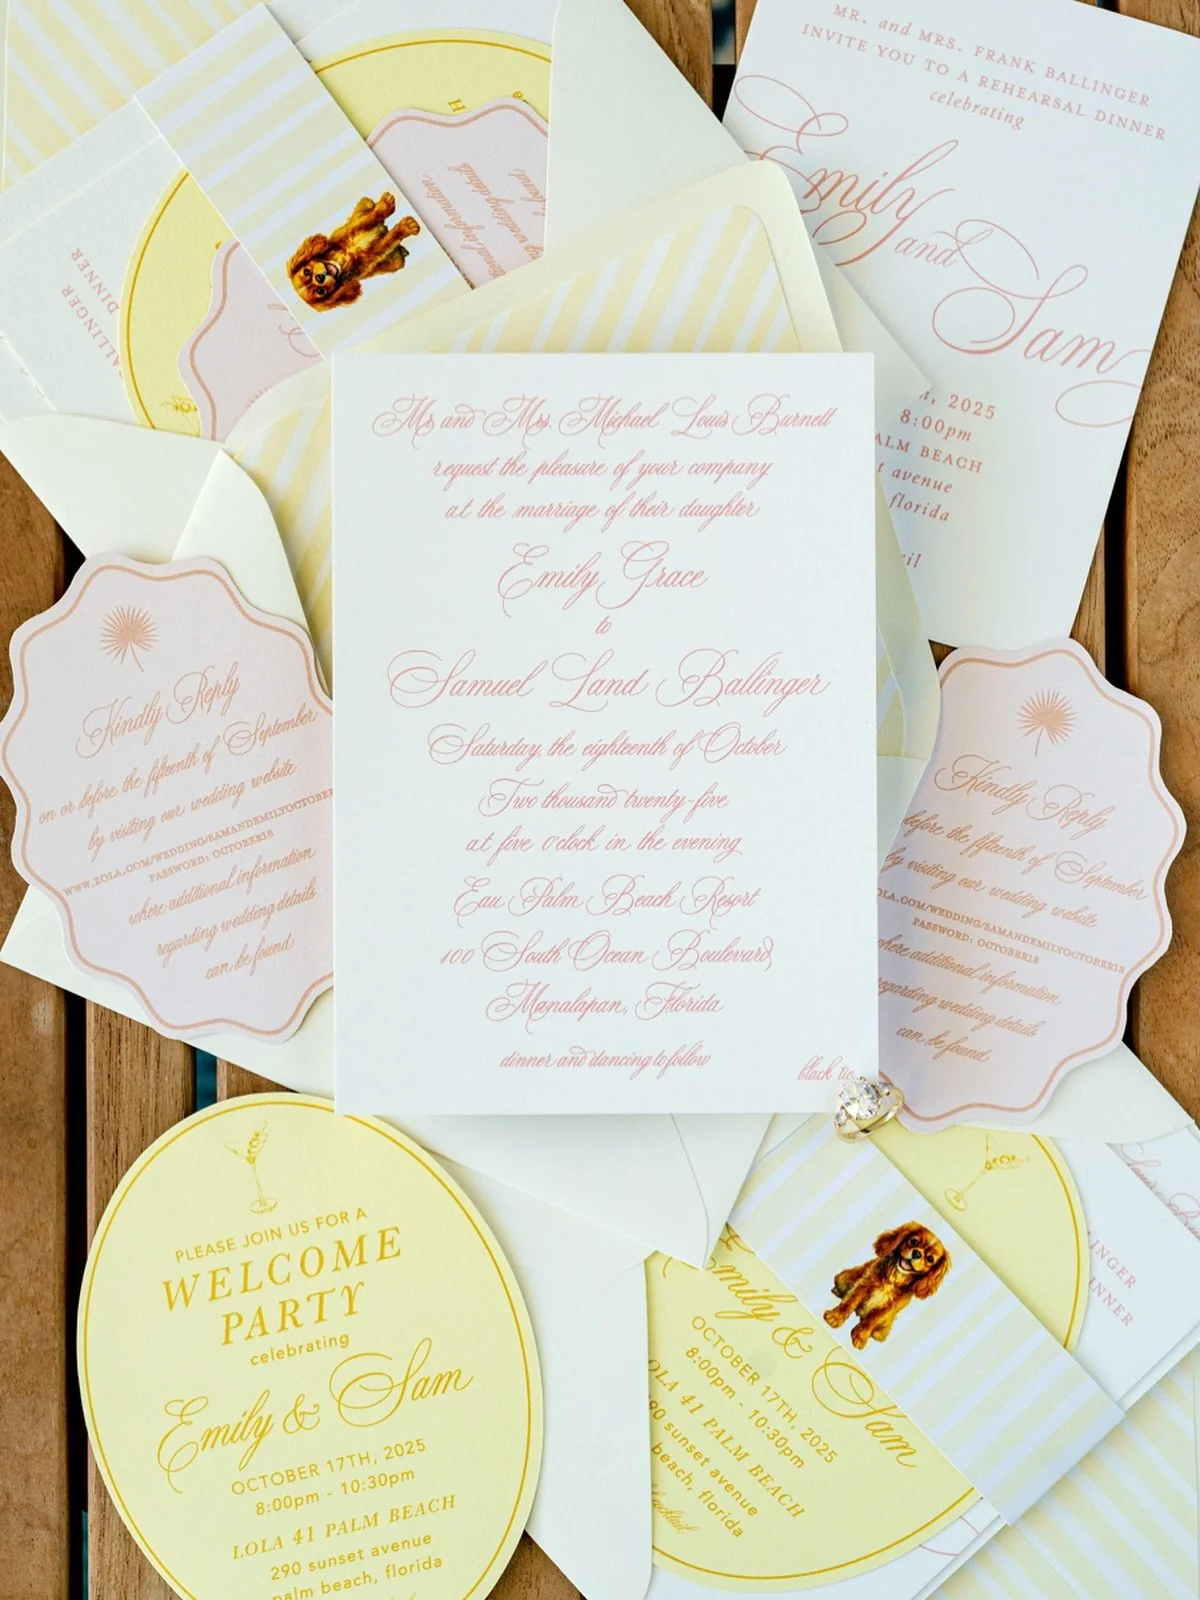 MR. and MRS. FRANK BALLINGER
INVITE YOU TO A REHEARSAL DINNER
celebrating
Emily
and
Sam
2025
8:00pm
PALM BEACH
avenue
florida
BALLINGER
DINNER
Mr. and Mrs. Michael Louis Burnett
request the pleasure of your company
at the marriage of their daughter
Emily Grace
to
Samuel Land Ballinger
Saturday, the eighteenth of October
Two thousand twenty-five
at five o'clock in the evening
Eau Palm Beach Resort
100 South Ocean Boulevard
Manalapan, Florida
dinner and dancing to follow
black tie
Kindly Reply
on or before the fifteenth of September
by visiting our wedding website
WWW.ZOLA.COM/WEDDING/SAMANDEMILYOCTOBER
PASSWORD: OCTOBER18
where additional information
regarding wedding details
can be found
Kindly Reply
before the fifteenth of September
by visiting our wedding website
OLA.COM/WEDDING/SAMANDEMILYOCTOBER18
PASSWORD: OCTOBER18
where additional information
regarding wedding details
can be found
PLEASE JOIN US FOR A
WELCOME
PARTY
celebrating
Emily & Sam
OCTOBER 17TH, 2025
8:00pm - 10:30pm
LOLA 41 PALM BEACH
290 sunset avenue
palm beach, florida
Emily & Sam
OCTOBER 17TH, 2025
8:00pm - 10:30pm
OLA 41 PALM BEACH
90 sunset avenue
beach, florida
cocktail
LINGER
DINNER